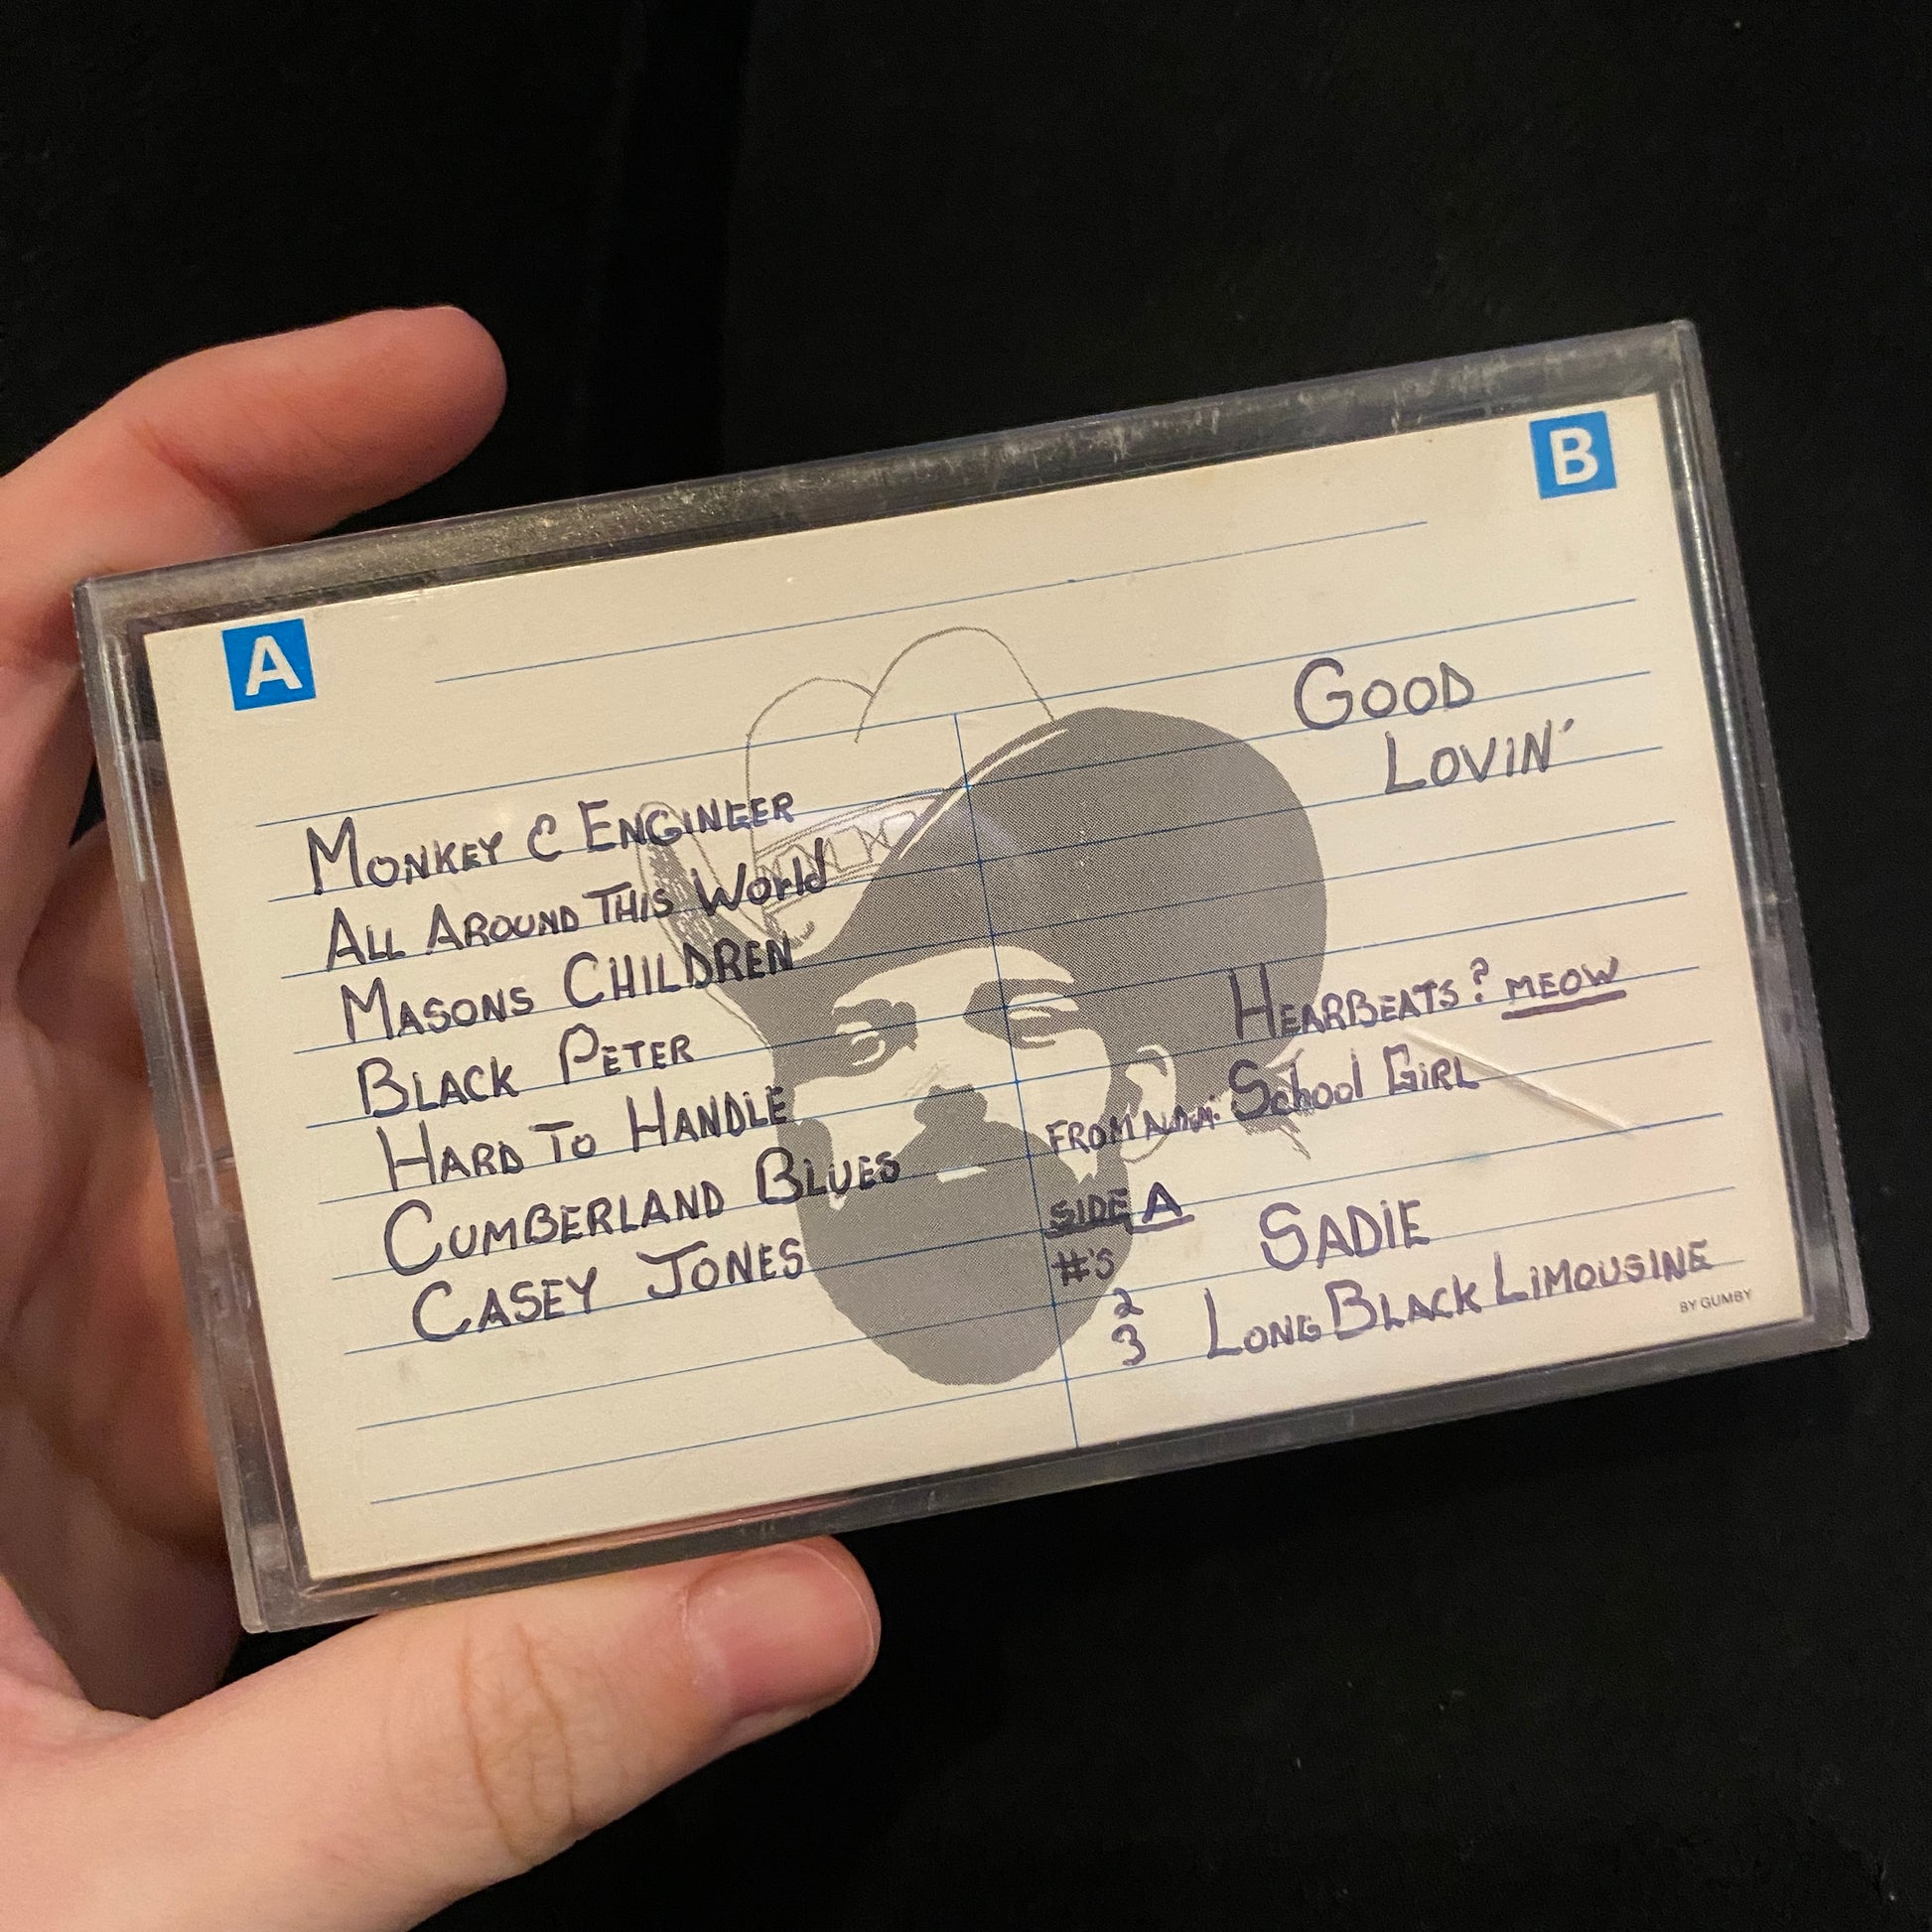 A
MONKEY & ENGINEER
ALL AROUND THIS WORLD
MASONS CHILDREN
BLACK PETER
HARD TO HANDLE
CUMBERLAND BLUES
CASEY JONES
B
GOOD
LOVIN'
HEARBEATS? MEOW
FROM School GIRL
SIDE A
#'S SADIE
2
3 LONG BLACK LIMOUSINE
BY GUMBY